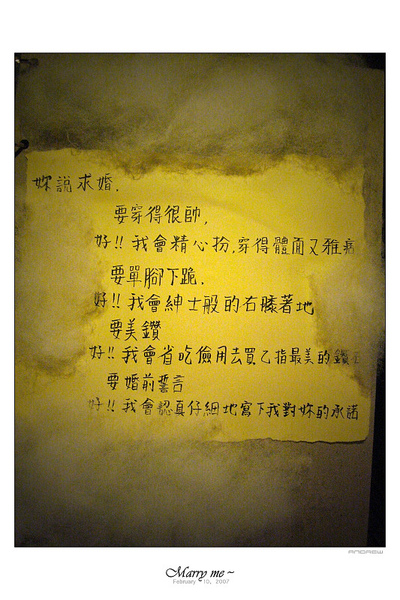 妳說求婚.
要穿得很帥,
好!! 我會精心扮.穿得體面又雅痞
要單腳下跪.
好!! 我會紳士般的右膝著地
要美鑽
好!! 我會省吃儉用去買乙指最美的鑽
要婚前誓言
好!! 我會認真仔細地寫下我對妳的承諾
ANDREW
Marry me ~
February 10, 2007